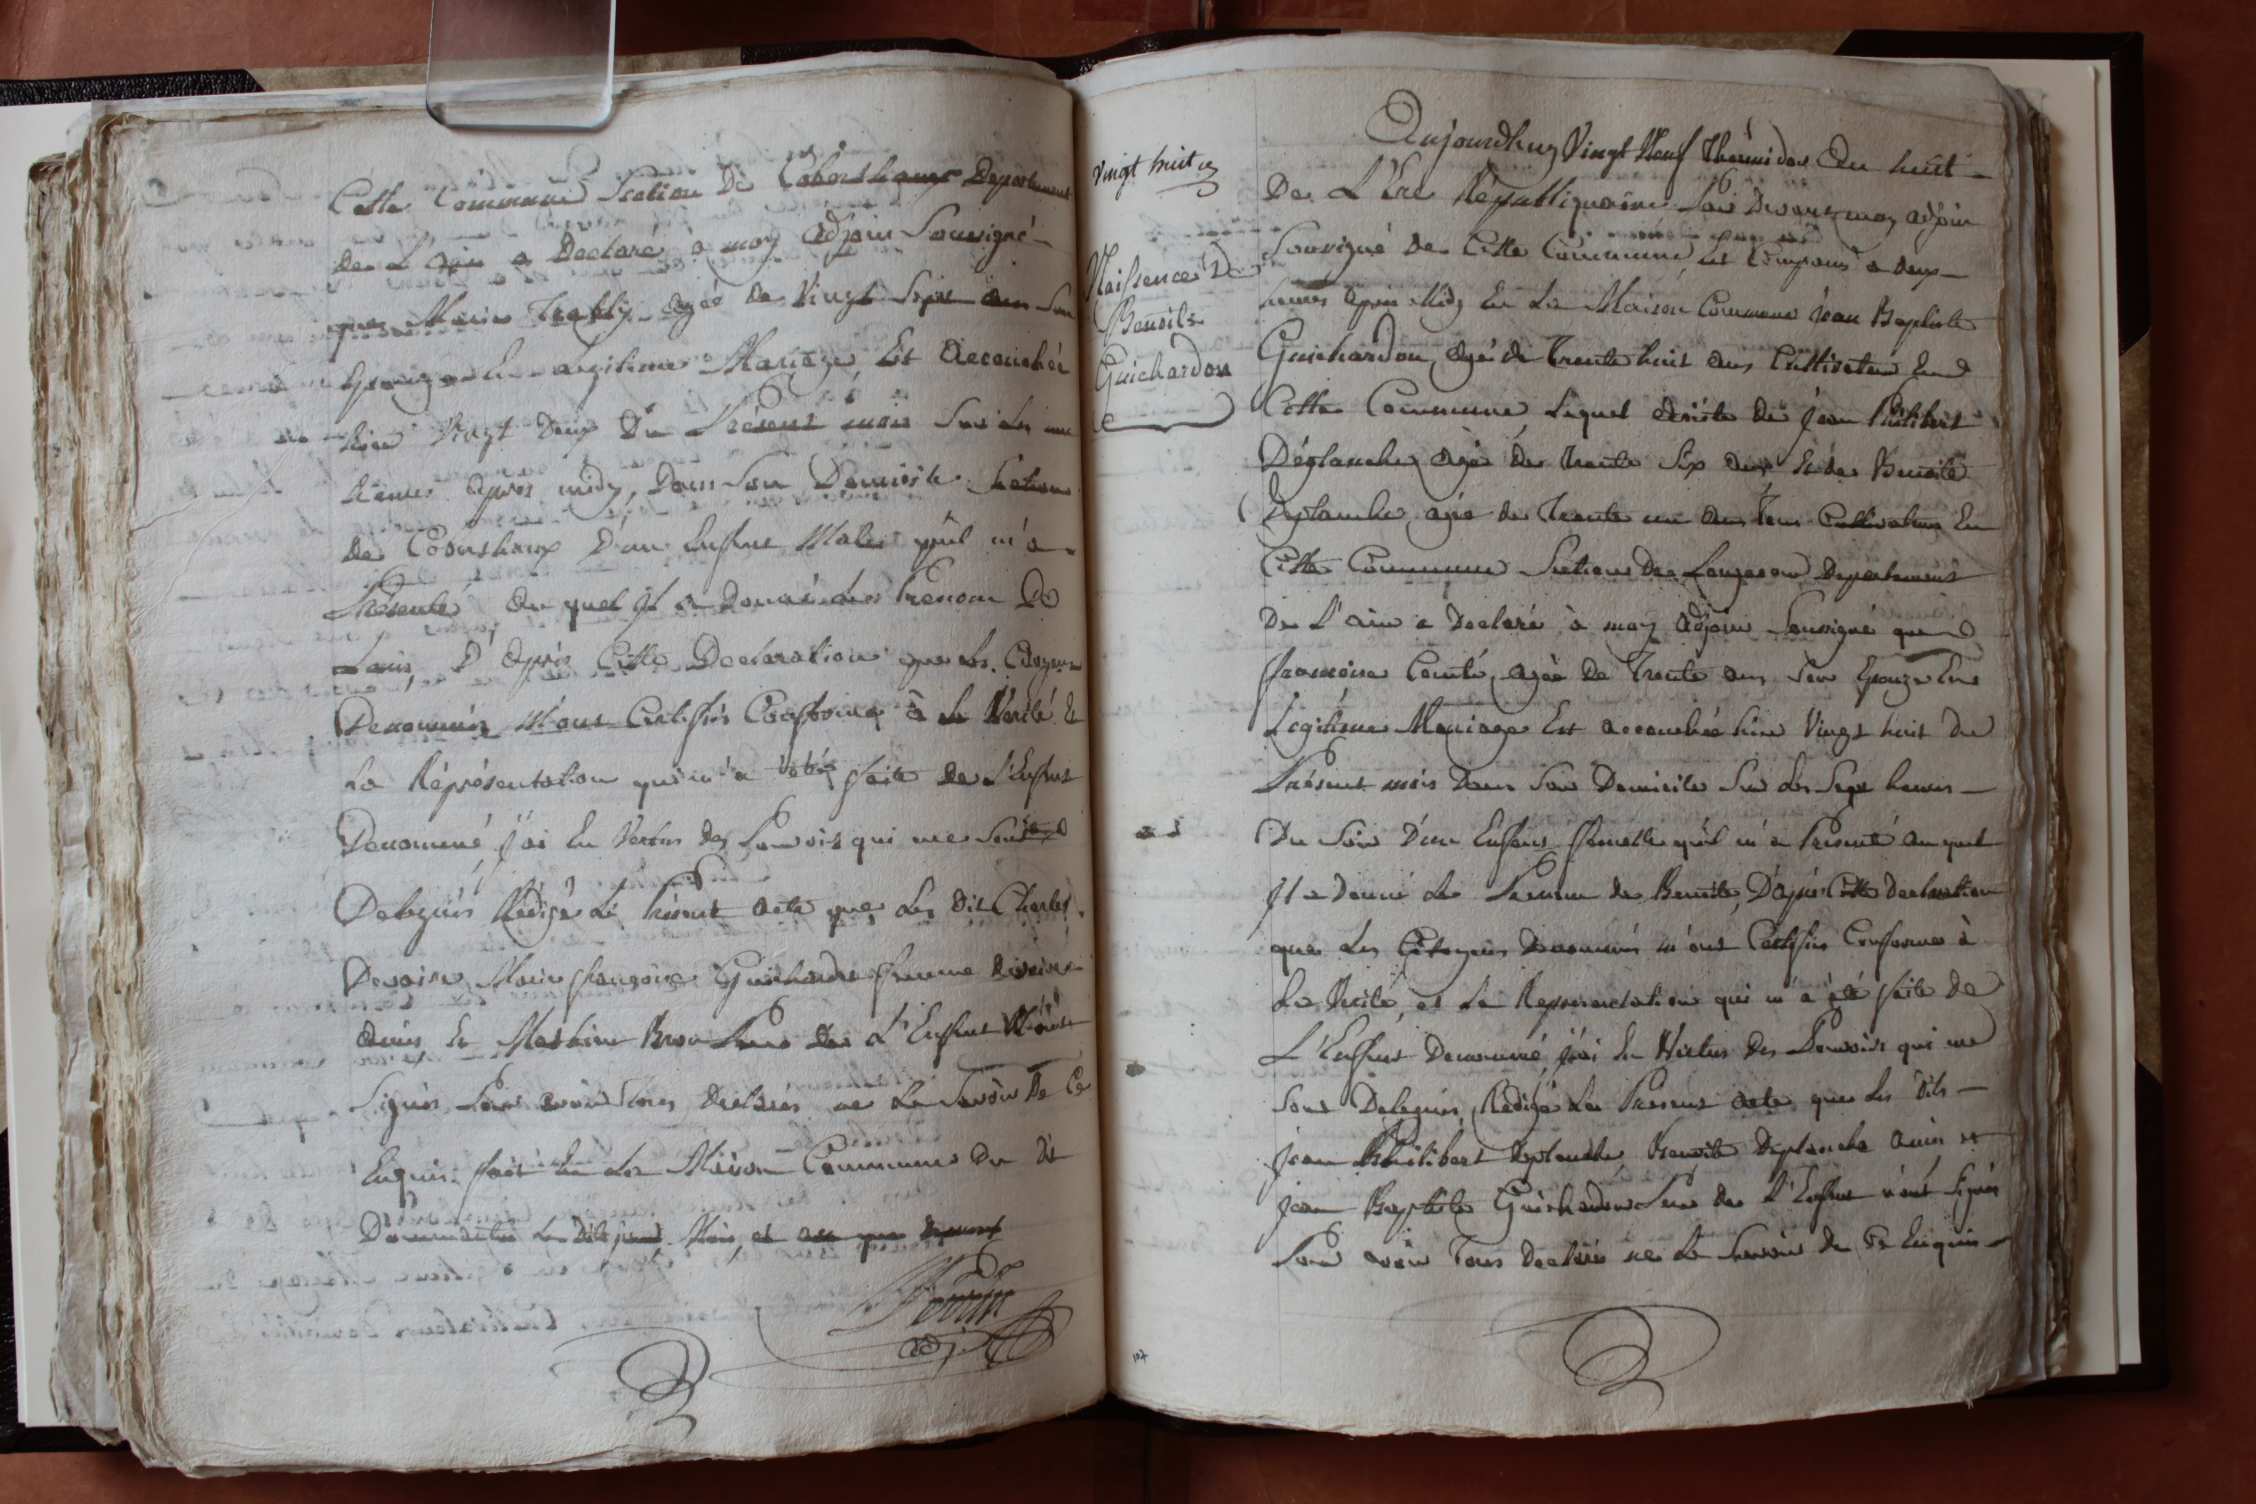 Cette Commune Section De Departement
De L'ain a Declaré a moy adjoin Sousigné
que Marie agée de Vingt Sept ans Son
Epouze En Legitime Mariage, Est Accouchée
hier Vingt Deux Du Présent mois Sur Les une
heures après midy, Dans Son Domicile Section
De D'un Enfant Male qu'il m'a
Présenté au quel Il a Donné Les Prenom De
Louis, D'après Cette Declaration que Les Citoyens
Denommés M'ont Certifiés Conforme à La Vérité Et
La Réprésentation qui m'a étéz faite De L'Enfant
Denommé, j'ai En Vertus des Pouvoirs qui me Sont
Delegués Rédigé Le Présent acte que Les Dit Charles
Marie françoise Guichardon femme
amis Et Mathieu Pere De L'Enfant N'ont
Signés Pour avoir Tous Declarés ne Le Savoir De Ce
Enquis fait En La Maison Commune Du Dit
Les Dits jour, Mois, et an que Devant
Perrin
adj
Vingt huit
Naissence De
Benoite
Guichardon
Aujourdhuy Vingt Neuf Thérmidor An huit
De L'Ere Republiquaine Par Devant moy adjoin
Sousigné De Cette Commune, est Comparus a deux
heures après Midy En La Maison Commune Jean Baptiste
Guichardon, agé de Trente huit ans Cultivateur En
Cette Commune, Lequel assisté De Jean Philibert
Déplanche, agé De Trente Six ans Et de Benoite
Deplanche, agé de Trente un ans Tous Cultivateurs En
Cette Commune Section De Departement
De L'ain a Declaré à moy adjoin Sousigné que
françoise Comté, agée De Trente ans Son Epouze En
Legitime Mariage Est accouchée hier Vingt huit Du
Présent mois Dans Son Domicile Sur Les Sept heures
Du Soir D'un Enfant femelle qu'il m'a Presenté au quel
Il a Donné Le Prenom de Benoite, D'après Cette Declaration
que Les Citoyens Denommés m'ont Certifiés Conforme à
La Verité, et La Representation qui m'a été faite De
L'Enfant Denommé, j'ai En Vertus Des Pouvoirs qui me
Sont Delegués, Redigé Le Present acte que Les Dits
Jean Philibert Deplanche Benoite Deplanche amis et
Jean Baptiste Guichardon Pere De L'Enfant n'ont Signés
Pour avoir Tous Declarés ne Le Savoir De Ce Enquis
107